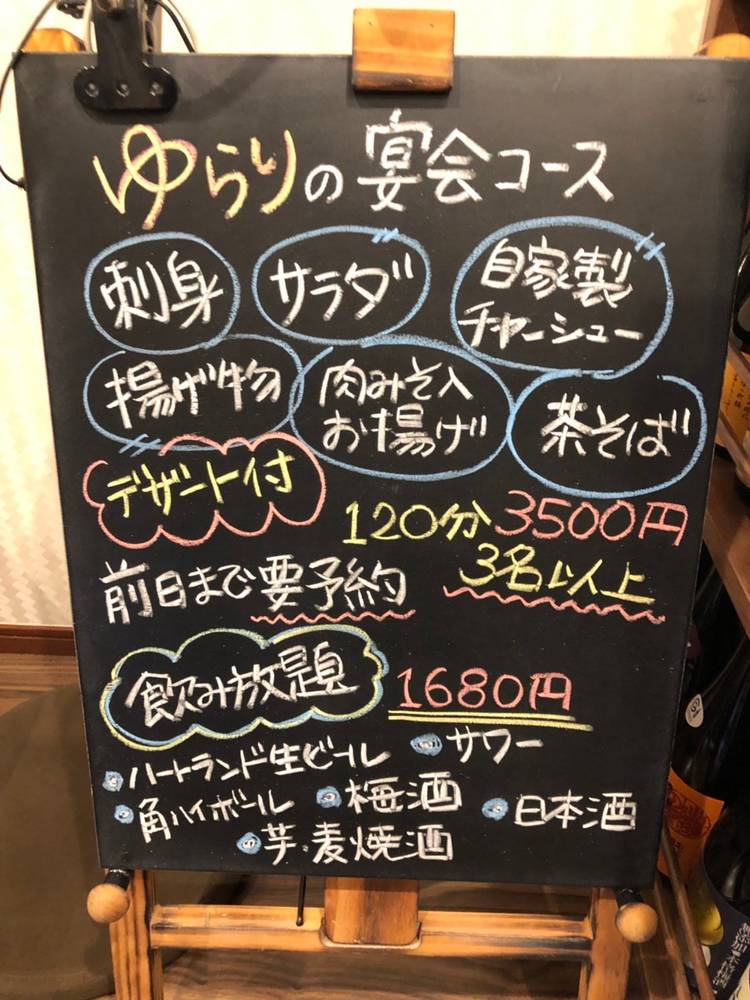 ゆらりの宴会コース
刺身 サラダ 自家製チャーシュー
揚げ物 肉みそ入お揚げ 茶そば
デザート付
120分 3500円
前日まで要予約 3名以上
飲み放題 1680円
ハートランド生ビール サワー
角ハイボール 梅酒 日本酒
芋・麦焼酒